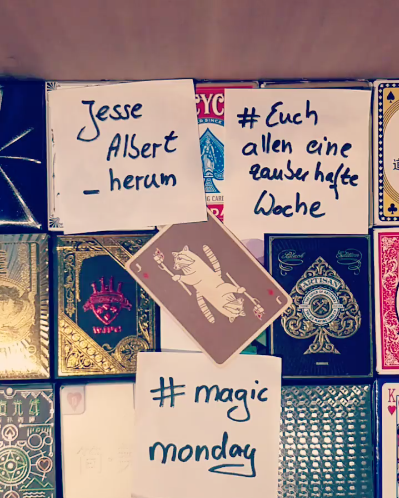 Jesse
Albert
_herum
YC
# Euch
allen eine
zauberhafte
Woche
ARTISAN
# magic
monday
K